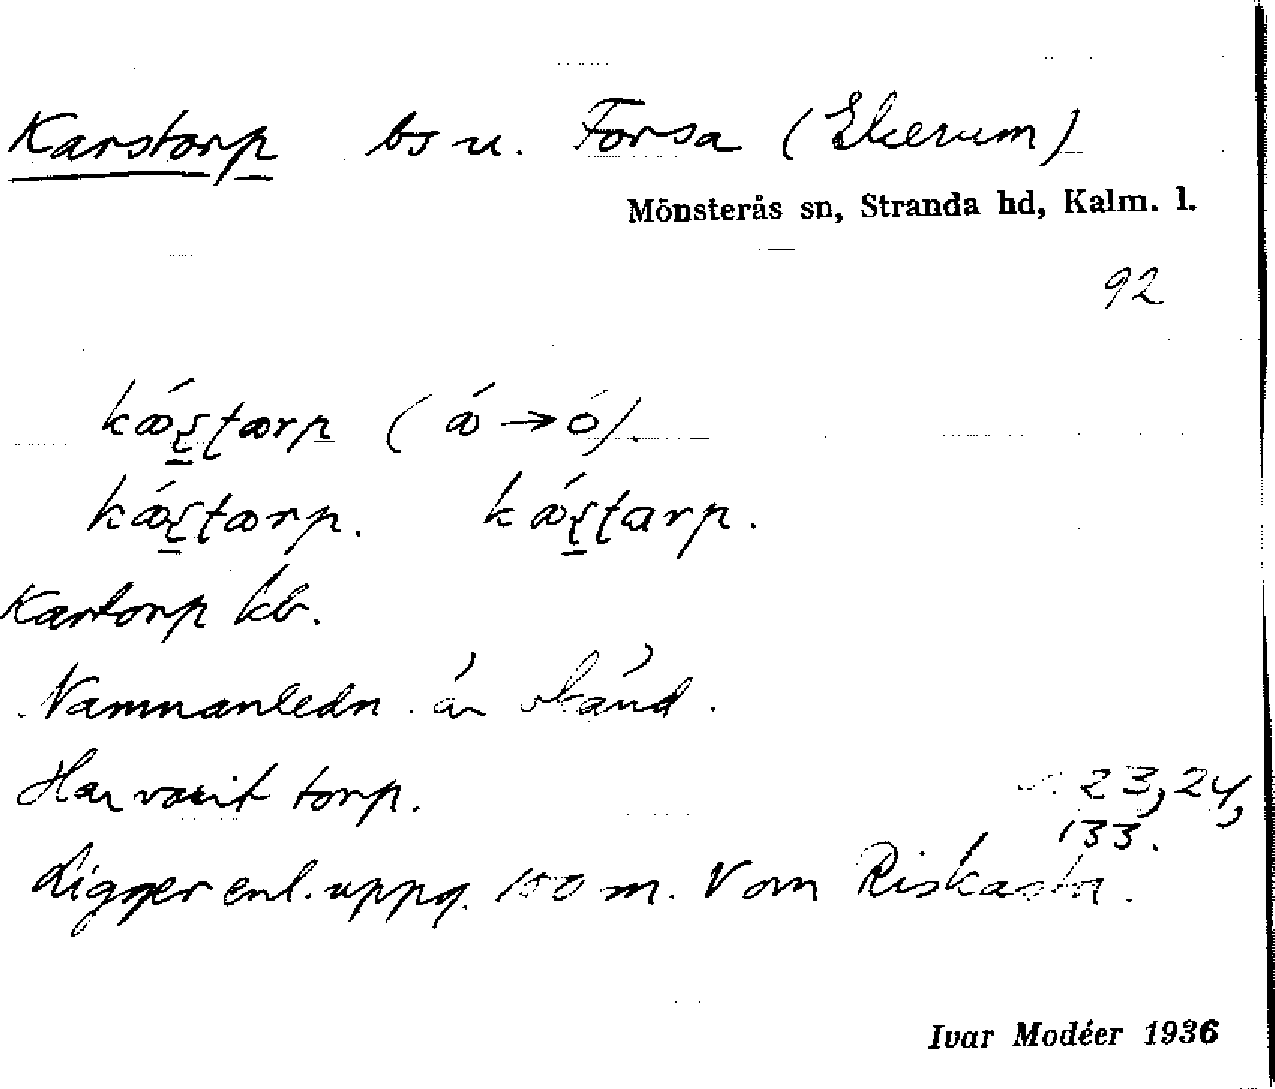 Karstorp bs u. Forsa (Ekerum)
Mönsterås sn, Stranda hd, Kalm. l.
92
Kartorp kb.
Namnanledn. är okänd.
Har varit torp. 23, 24,
133.
Ligger enl. uppg. 150 m. V om
Ivar Modéer 1936